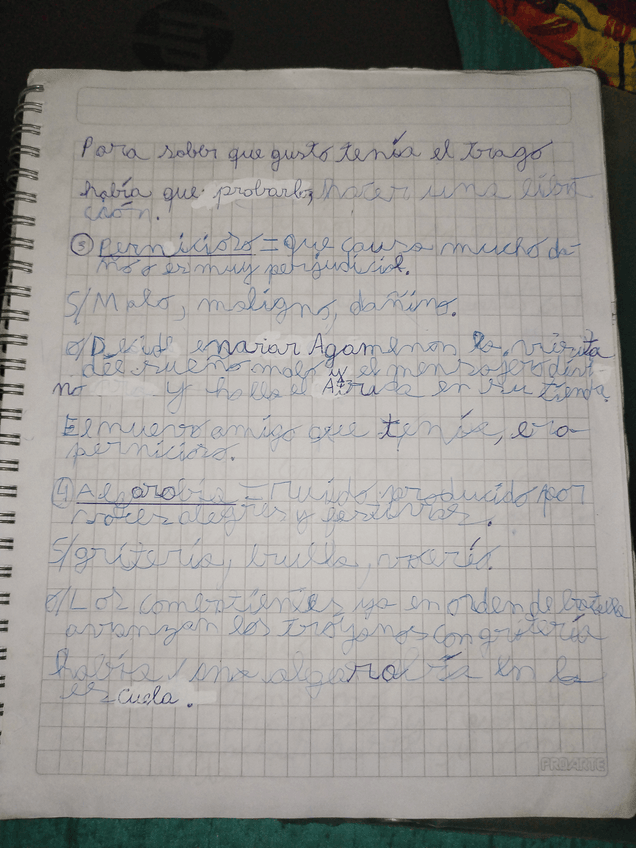 Para saber que gusto tenía el trago
había que probarlo, hacer una liba
ción.
③ Pernicioso = que causa mucho da-
ño o es muy perjudicial.
S/ Malo, maligno, dañino.
o/ Decide enviar Agamenon la visita
del sueño malo y el mensajero divi-
no y halla el Atrida en su tienda.
El nuevo amigo que tenía, era
pernicioso.
④ Algarabía = ruido producido por
voces alegres y
S/ gritería, bulla, vocerío.
o/ Los combatientes ya en orden de batalla
avanzan los troyanos con gritería
había una algarabía en la
escuela.
PROARTE
hp